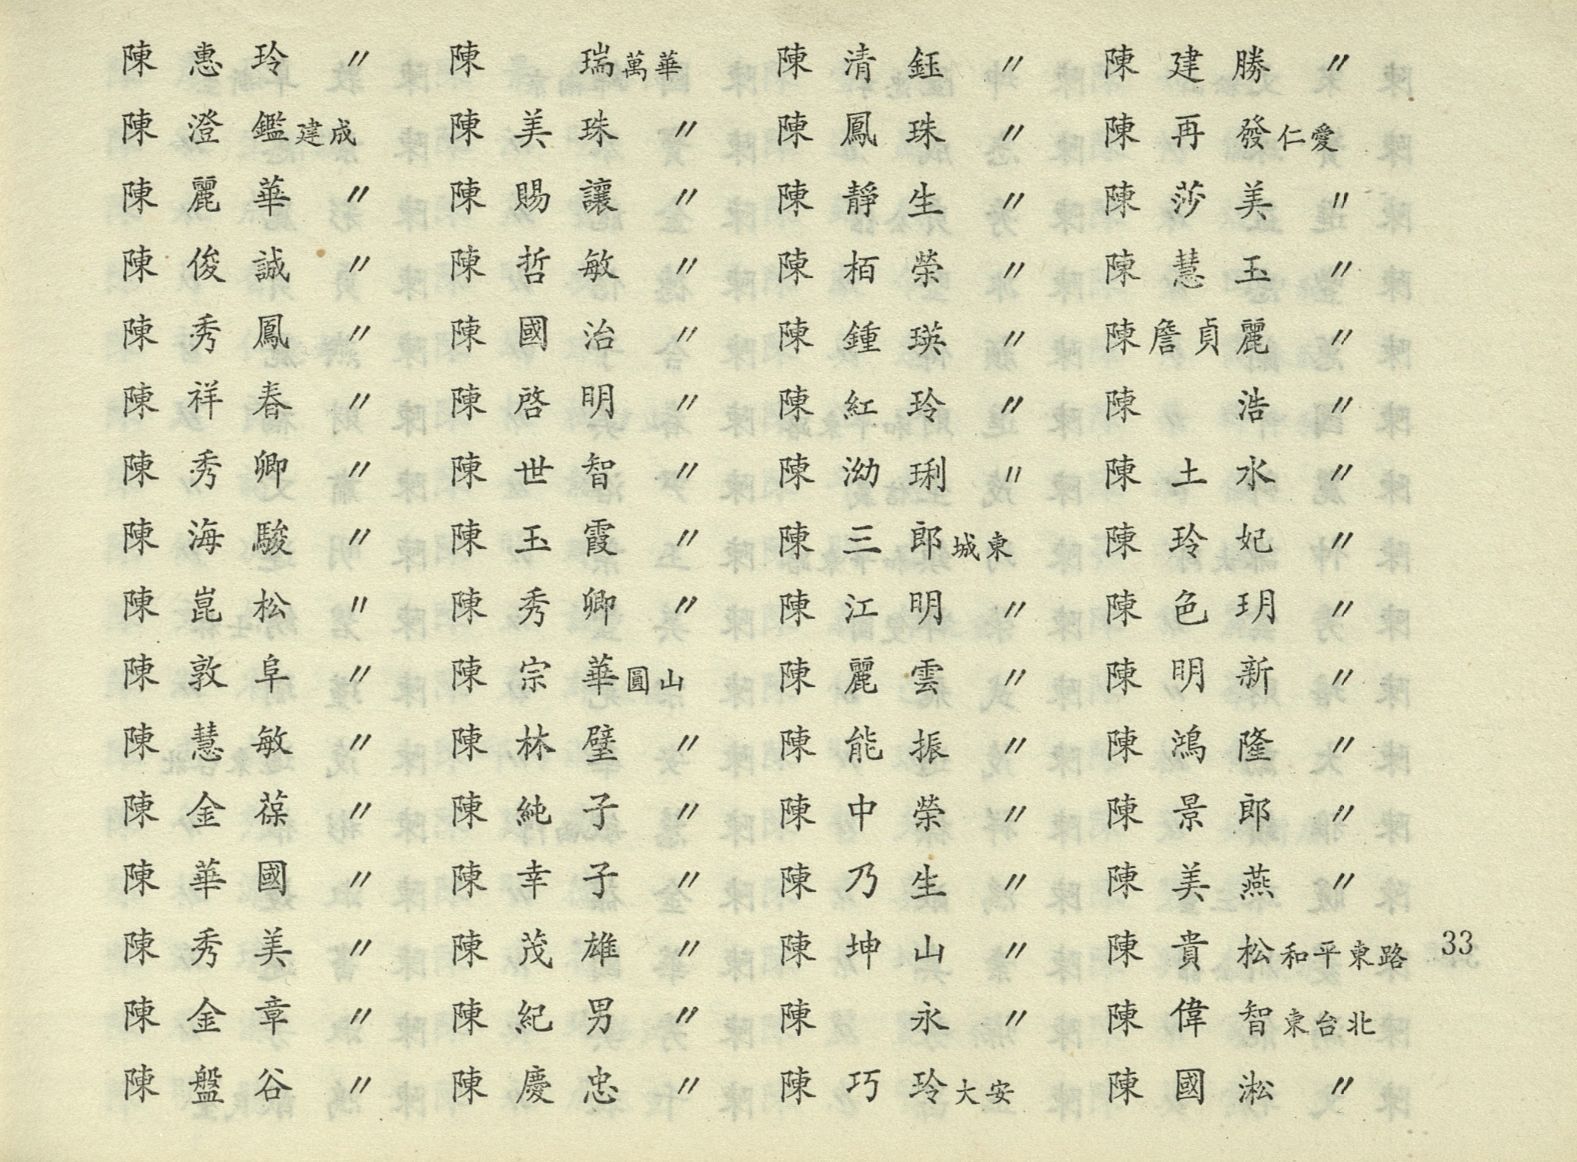 陳惠玲 〃
陳澄鑑建成
陳麗華 〃
陳俊誠 〃
陳秀鳳 〃
陳祥春 〃
陳秀卿 〃
陳海駿 〃
陳崑松 〃
陳敦阜 〃
陳慧敏 〃
陳金葆 〃
陳華國 〃
陳秀美 〃
陳金章 〃
陳盤谷 〃
陳 瑞萬華
陳美珠 〃
陳賜讓 〃
陳哲敏 〃
陳國治 〃
陳啓明 〃
陳世智 〃
陳玉霞 〃
陳秀卿 〃
陳宗華圓山
陳林璧 〃
陳純子 〃
陳幸子 〃
陳茂雄 〃
陳紀男 〃
陳慶忠 〃
陳清鈺 〃
陳鳳珠 〃
陳靜生 〃
陳栢榮 〃
陳鍾瑛 〃
陳紅玲 〃
陳泑琍 〃
陳三郎城東
陳江明 〃
陳麗雲 〃
陳能振 〃
陳中榮 〃
陳乃生 〃
陳坤山 〃
陳 永 〃
陳巧玲大安
陳建勝 〃
陳再發仁愛
陳莎美 〃
陳慧玉 〃
陳詹貞麗 〃
陳 浩 〃
陳土水 〃
陳玲妃 〃
陳色玥 〃
陳明新 〃
陳鴻隆 〃
陳景郎 〃
陳美燕 〃
陳貴松和平東路
陳偉智東台北
陳國淞 〃
33